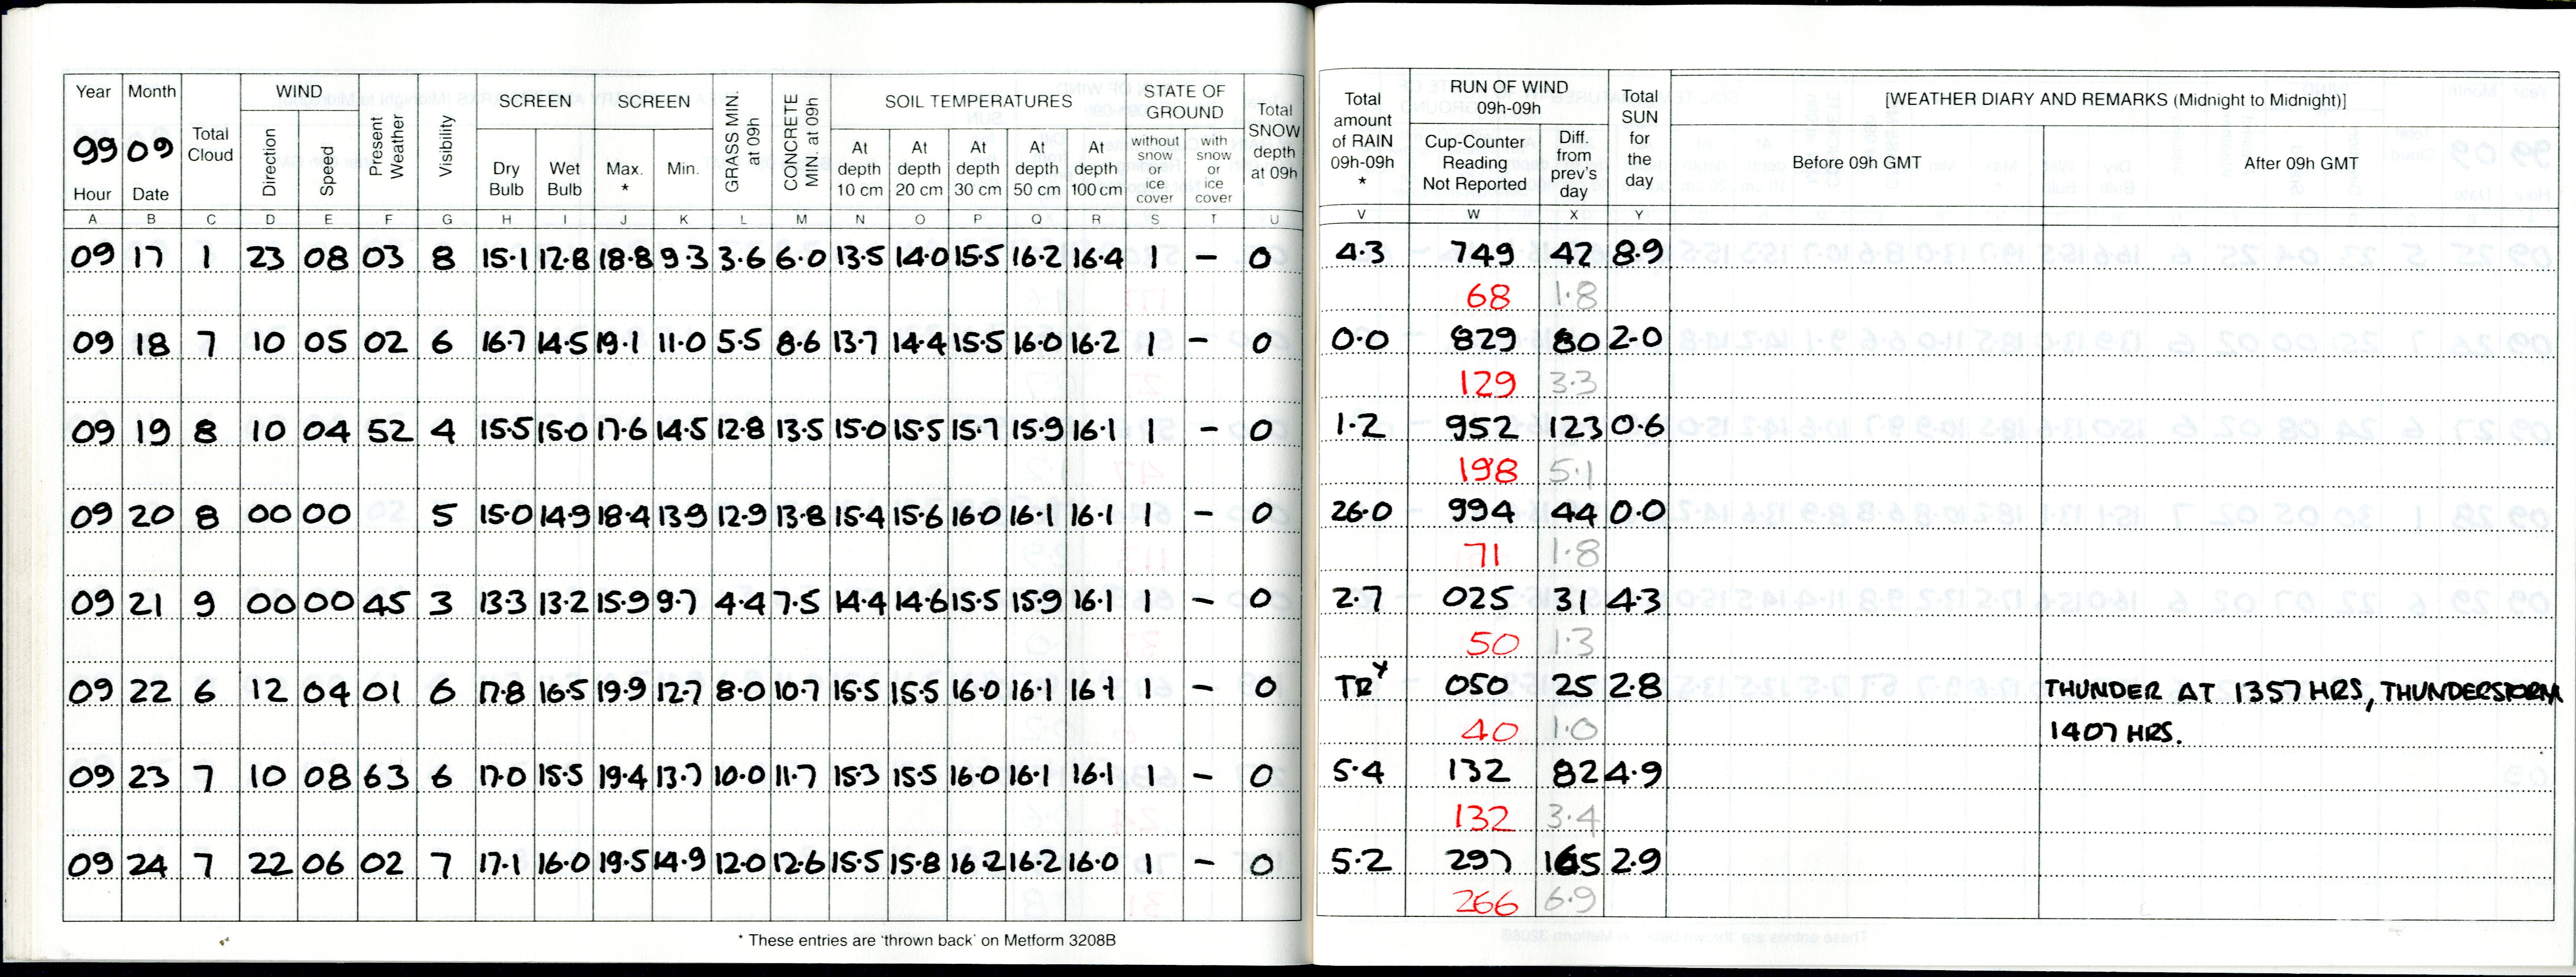 Year Month Total Cloud WIND Present Weather Visibility SCREEN SCREEN GRASS MIN. at 09h CONCRETE MIN. at 09h SOIL TEMPERATURES STATE OF GROUND Total SNOW depth at 09h Total amount of RAIN 09h-09h * RUN OF WIND 09h-09h Total SUN for the day [WEATHER DIARY AND REMARKS (Midnight to Midnight)]
99 09 Direction Speed Dry Bulb Wet Bulb Max. * Min. At depth 10 cm At depth 20 cm At depth 30 cm At depth 50 cm At depth 100 cm without snow or ice cover with snow or ice cover Cup-Counter Reading Not Reported Diff. from prev's day Before 09h GMT After 09h GMT
Hour Date
A B C D E F G H I J K L M N O P Q R S T U V W X Y
09 17 1 23 08 03 8 15.1 12.8 18.8 9.3 3.6 6.0 13.5 14.0 15.5 16.2 16.4 1 – 0 4.3 749 42 8.9
68 1.8
09 18 7 10 05 02 6 16.7 14.5 19.1 11.0 5.5 8.6 13.7 14.4 15.5 16.0 16.2 1 – 0 0.0 829 80 2.0
129 3.3
09 19 8 10 04 52 4 15.5 15.0 17.6 14.5 12.8 13.5 15.0 15.5 15.7 15.9 16.1 1 – 0 1.2 952 123 0.6
198 5.1
09 20 8 00 00 5 15.0 14.9 18.4 13.9 12.9 13.8 15.4 15.6 16.0 16.1 16.1 1 – 0 26.0 994 44 0.0
71 1.8
09 21 9 00 00 45 3 13.3 13.2 15.9 9.7 4.4 7.5 14.4 14.6 15.5 15.9 16.1 1 – 0 2.7 025 31 4.3
50 1.3
09 22 6 12 04 01 6 17.8 16.5 19.9 12.7 8.0 10.7 15.5 15.5 16.0 16.1 16.1 1 – 0 TR 050 25 2.8 THUNDER AT 1357 HRS, THUNDERSTORM
40 1.0 1407 HRS.
09 23 7 10 08 63 6 17.0 15.5 19.4 13.7 10.0 11.7 15.3 15.5 16.0 16.1 16.1 1 – 0 5.4 132 82 4.9
132 3.4
09 24 7 22 06 02 7 17.1 16.0 19.5 14.9 12.0 12.6 15.5 15.8 16.2 16.2 16.0 1 – 0 5.2 297 165 2.9
266 6.9
* These entries are 'thrown back' on Metform 3208B